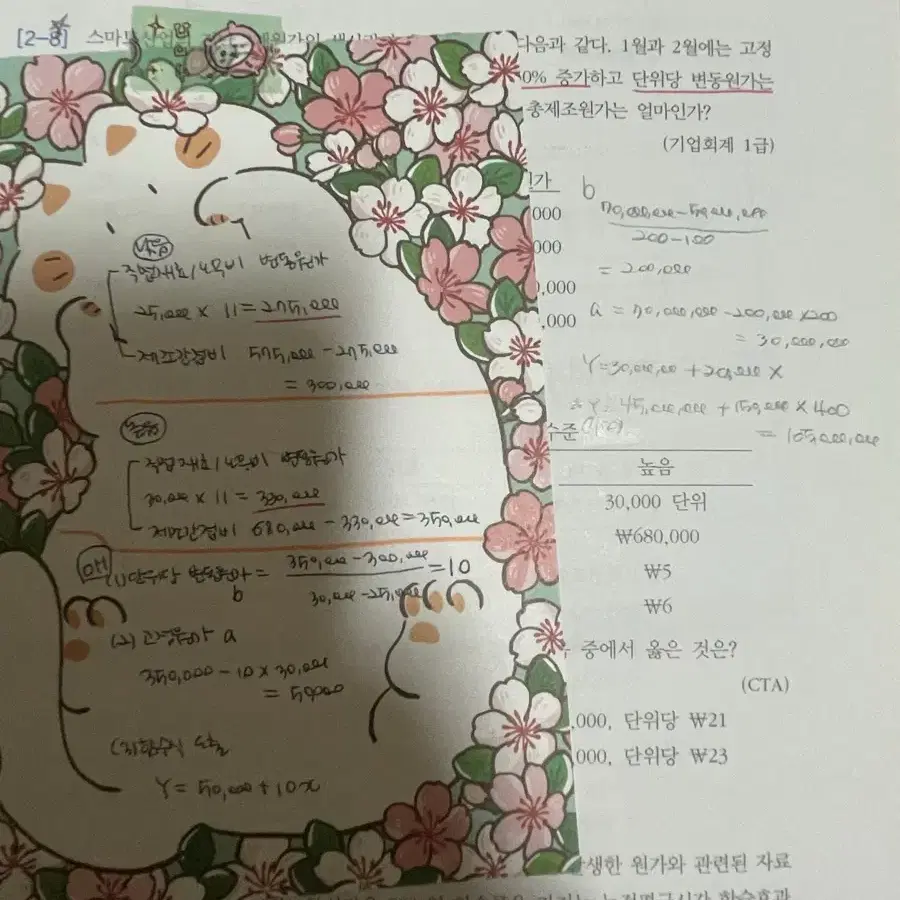 [2-8] 스마트산업
다음과 같다. 1월과 2월에는 고정
0% 증가하고 단위당 변동원가는
총제조원가는 얼마인가?
(기업회계 1급)
000
000
,000
,000
b
200-100
= 200,000
a = 70,000,000-200,000 x200
= 30,000,000
Y=30,000,000 + 200,000 X
∴ Y= 45,000,000 + 150,000 x 400
= 105,000,000
수준
높음
30,000 단위
₩680,000
₩5
₩6
중에서 옳은 것은?
(CTA)
,000, 단위당 ₩21
,000, 단위당 ₩23
발생한 원가와 관련된 자료
낮음
직접재료/노무비 변동원가
25,000 x 11 = 275,000
제조간접비 575,000 - 275,000
= 300,000
높음
직접재료/노무비 변동원가
30,000 x 11 = 330,000
제조간접비 680,000 - 330,000 = 350,000
(1) 단위당 변동원가 = 350,000 - 300,000 = 10
b 30,000 - 25,000
(2) 고정원가 a
350,000 - 10 x 30,000
= 50000
(3) 함수식 도출
Y = 50,000 + 10x